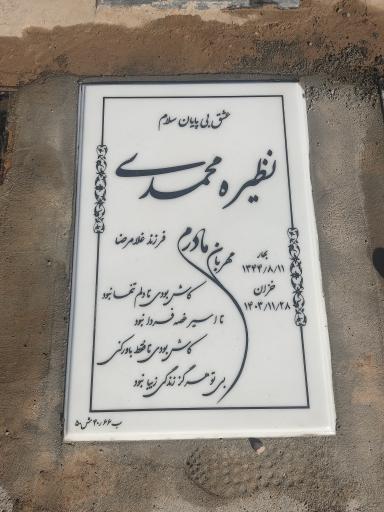 عشق بی پایان سلام
نظیره محمدی
فرزند غلامرضا
مادرم
مهربان
بهار
۱۳۴۴/۸/۱۱
خزان
۱۴۰۳/۱۱/۲۸
کاش بودی تا دلم تنها نبود
تا اسیر غصه فردا نبود
کاش بودی تا فقط باور کنی
بی تو هرگز زندگی زیبا نبود
ب۶۶ر۴۰ش۵۰